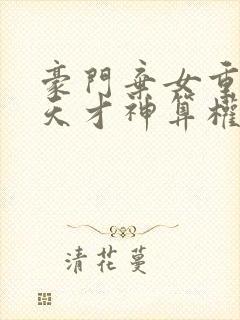 豪門棄女重
天才神算權
清花蔓